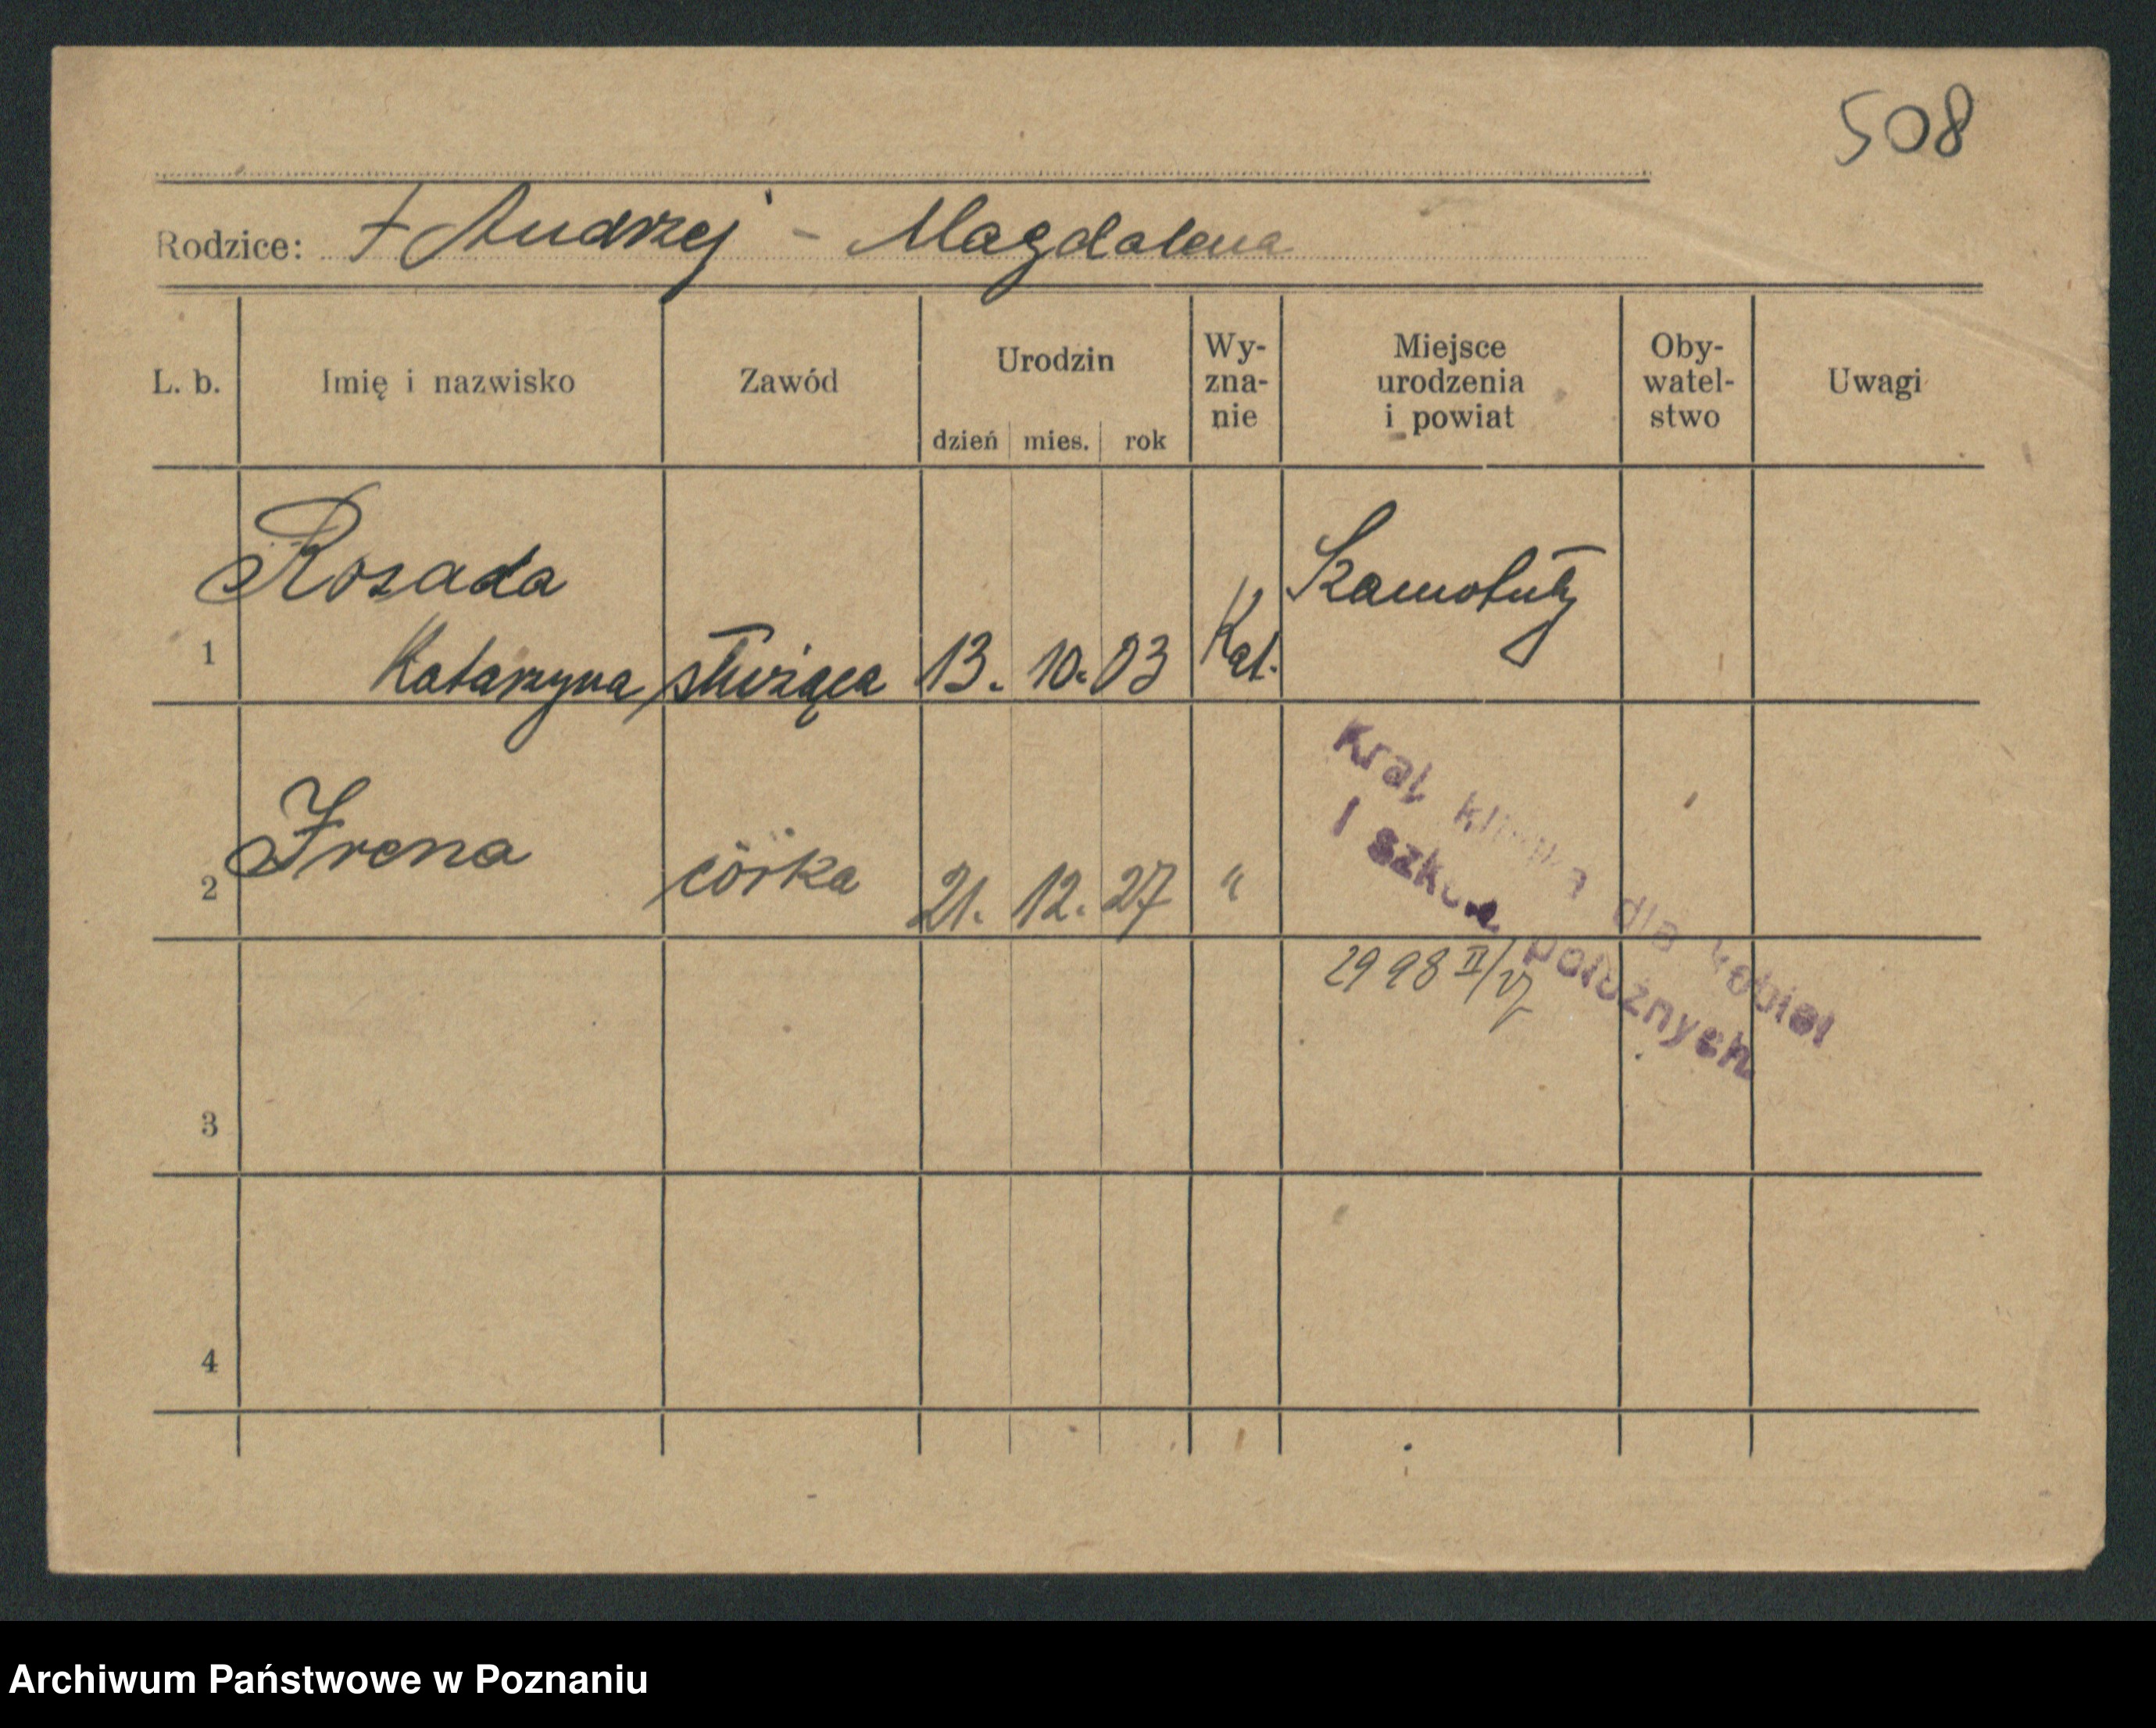 508
Rodzice: † Andrzej - Magdalena
L. b. Imię i nazwisko Zawód Urodzin dzień mies. rok Wy-zna-nie Miejsce urodzenia i powiat Oby-watel-stwo Uwagi
Rosada Szamotuły
1 Katarzyna służąca 13. 10. 03 Kat.
2 Irena córka 21. 12. 27 "
Kraj. klinika dla kobiet
I szkoła położnych
2998 II/27
3
4
Archiwum Państwowe w Poznaniu